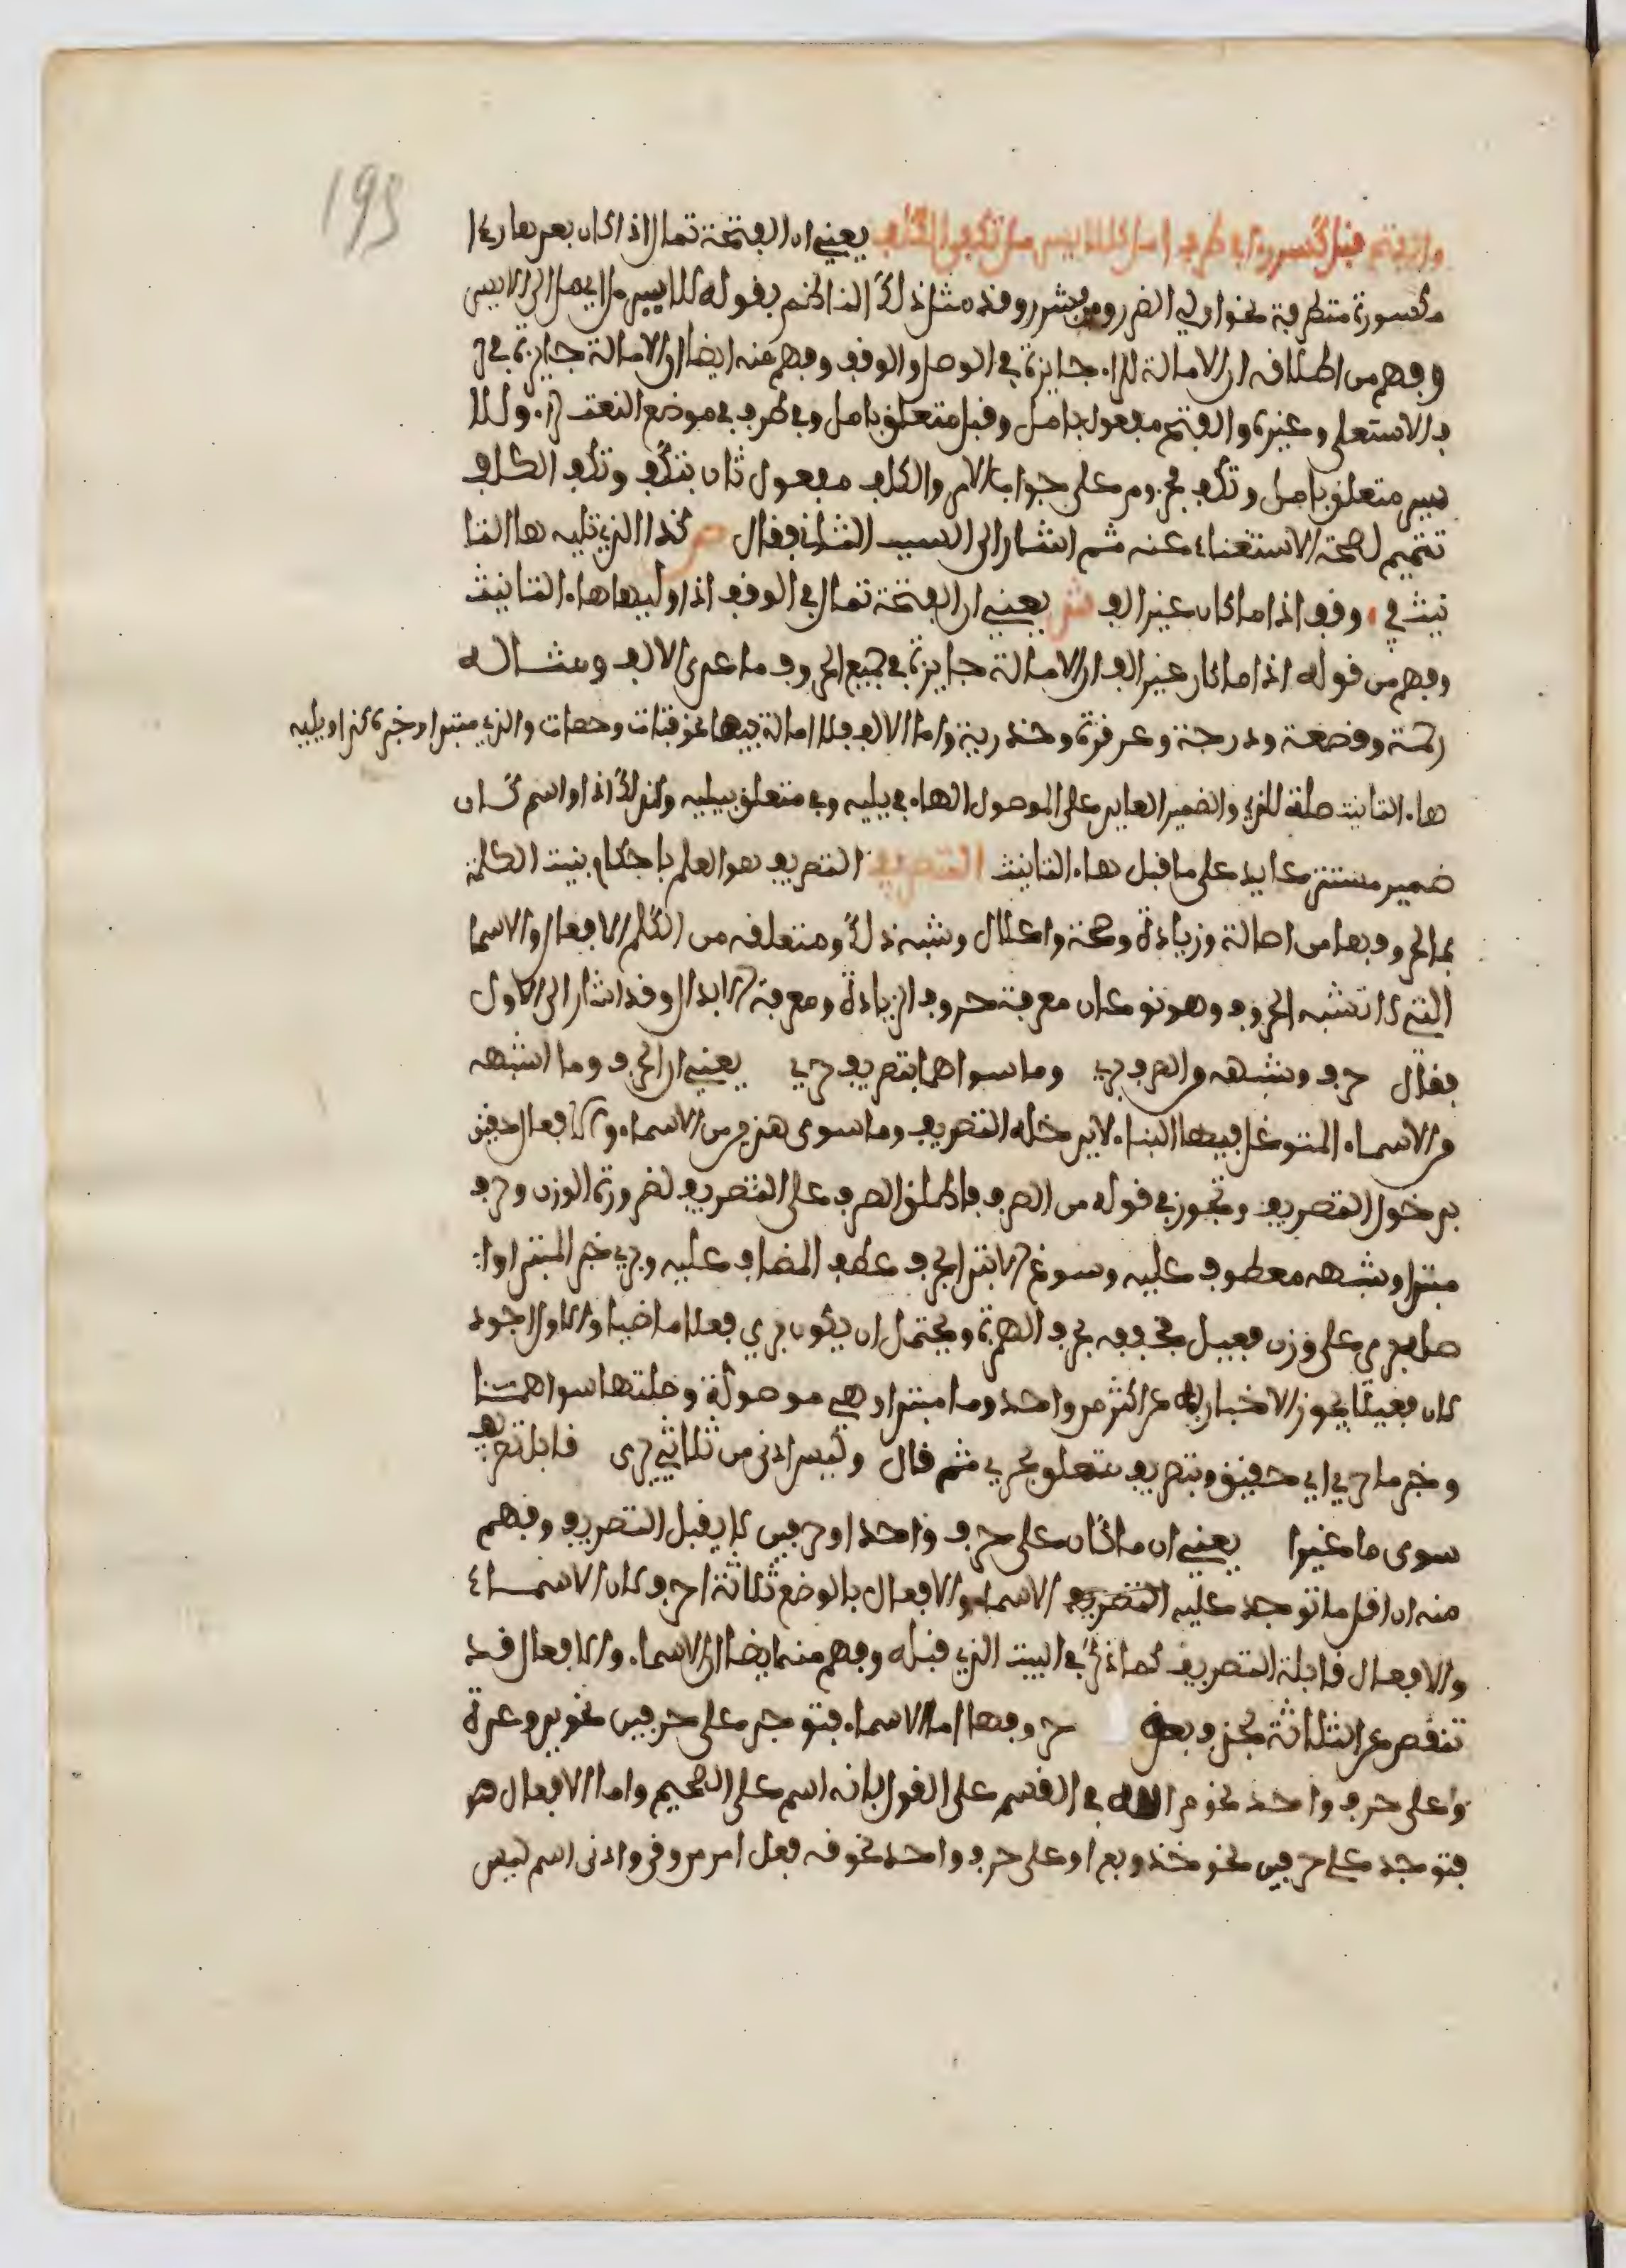 195
والفتح قبل كسر راء في طرف امل كللايسر مل تكف الكلف يعني ان الفتحة تمال اذا كان بعدها راء
مكسورة متطرفة نحو اولي الضرر ومن بشرر وقد مثل ذلك الناظم بقوله للايسر مل اي مل الى الايسر
وفهم من اطلاقه ان الامالة للراء جايزة في الوصل والوقف وفهم منه ايضا ان الامالة جايزة في حر
ف الاستعلى وغيره والفتح مفعول بامل وقبل متعلق بامل وفي طرف في موضع النعت لراء وللا
يسر متعلق بامل وتكف مجزوم على جواب الامر والكلف مفعول ثان بتكف وتكف الكلف
تتميم لصحة الاستغناء عنه ثم اشار الى السبب الثاني فقال ص كذا الذي تليه ها التا
نيث في وقف اذا ما كان غير الف ش يعني ان الفتحة تمال في الوقف اذا وليها هاء التانيث
وفهم من قوله اذا ما كان غير الف ان الامالة جايزة في جميع الحروف ما عدى الالف ومثاله
رحمة وقصعة ودرجة وعرفزة وحذرية واما الالف فلا امالة فيها نحو فتات وحصات والذي مبتدا وخبره كذا ويليه
هاء التانيث صلة للذي والضمير العايد على الموصول الهاء في يليه وفي متعلق بيليه وكذلك اذا واسم كان
ضمير مستتر عايد على ما قبل هاء التانيث التصريف التصريف هو العلم باحكام بنيت الكلمة
بما لحروفها من اصالة وزيادة وصحة واعلال وشبه ذلك ومتعلقه من الكلم الافعال والاسما
التي لا تشبه الحروف وهو نوعان معرفة حروف الزيادة ومعرفة الابدال وقد اشار الى الاول
فقال حرف وشبهه من الصرف بري وما سواهما بتصريف حري يعني ان الحرف وما اشبهه
من الاسماء المتوغل فيها البناء لا يدخله التصريف وما سوى هذين من الاسماء والافعال حقيق
بدخول التصريف وتجوز في قوله من الصرف فاطلق الصرف على التصريف لضرورة الوزن وحرف
مبتدا وشبهه معطوف عليه وسوغ الابتدا بحرف عطف المضاف عليه وبري خبر المبتدا وا
صله بري على وزن فعيل مخففه بحذف الهمزة ويحتمل ان يكون بري فعلا ماضيا والاول اجود
لان فعيلا يجوز الاخبار به عن اكثر من واحد وما مبتدا وهي موصولة وصلتها سواهما
وخبر ما حري اي حقيق وبتصريف متعلق بحري ثم قال وليس ادنى من ثلاثي يرى قابل تصريف
سوى ما غيرا يعني ان ما كان على حرف واحد او حرفين لا يقبل التصريف وفهم
منه ان اقل ما توجد عليه التصريف الاسماء والافعال بالوضع ثلاثة احرف لان الاسماء
والافعال قابلة التصريف كما ذكر في البيت الذي قبله وفهم منه ايضا ان الاسماء والافعال قد
تنقص عن الثلاثة بحذف بعض حروفها اما الاسماء فتوجد على حرفين نحو يد وعدة
وعلى حرف واحد نحو م الله في القسم على القول بانه اسم على الصحيح واما الافعال هو
فتوجد على حرفين نحو خذ وبع او على حرف واحد نحو فه فعل امر من وفى وادنى اسم ليس